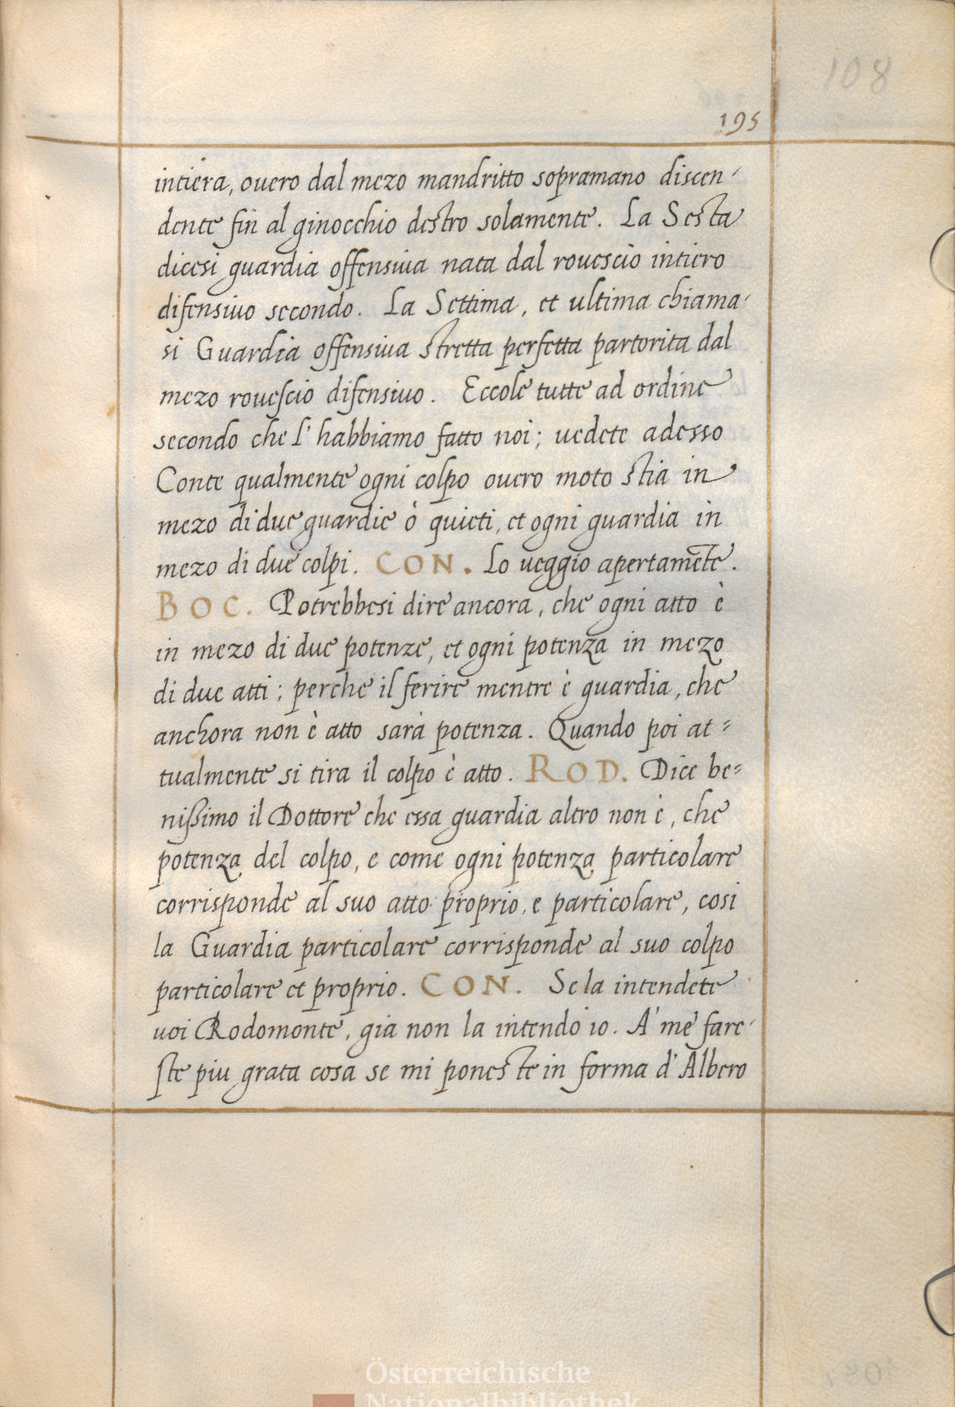 108
195
intiera, ouero dal mezo mandritto sopramano discen-
dente fin al ginocchio destro solamente. La Sesta
dicesi guardia offensiua nata dal rouescio intiero
difensiuo secondo. La Settima, et ultima chiama-
si Guardia offensiua stretta perfetta partorita dal
mezo rouescio difensiuo. Eccole tutte ad ordine
secondo che l'habbiamo fatto noi; uedete adesso
Conte qualmente ogni colpo ouero moto stia in
mezo di due guardie ò quieti, et ogni guardia in
mezo di due colpi. CON. Lo ueggio apertamēte.
BOC. Potrebbesi dire ancora, che ogni atto è
in mezo di due potenze, et ogni potenza in mezo
di due atti; perche il ferire mentre è guardia, che
anchora non è atto sarà potenza. Quando poi at-
tualmente si tira il colpo è atto. ROD. Dice be-
nissimo il Dottore che essa guardia altro non è, che
potenza del colpo, e come ogni potenza particolare
corrisponde al suo atto proprio, e particolare, cosi
la Guardia particolare corrisponde al suo colpo
particolare et proprio. CON. Se la intendete
uoi Rodomonte, gia non la intendo io. A' me fare-
ste piu grata cosa se mi poneste in forma d'Albero
Österreichische
Nationalbibliothek